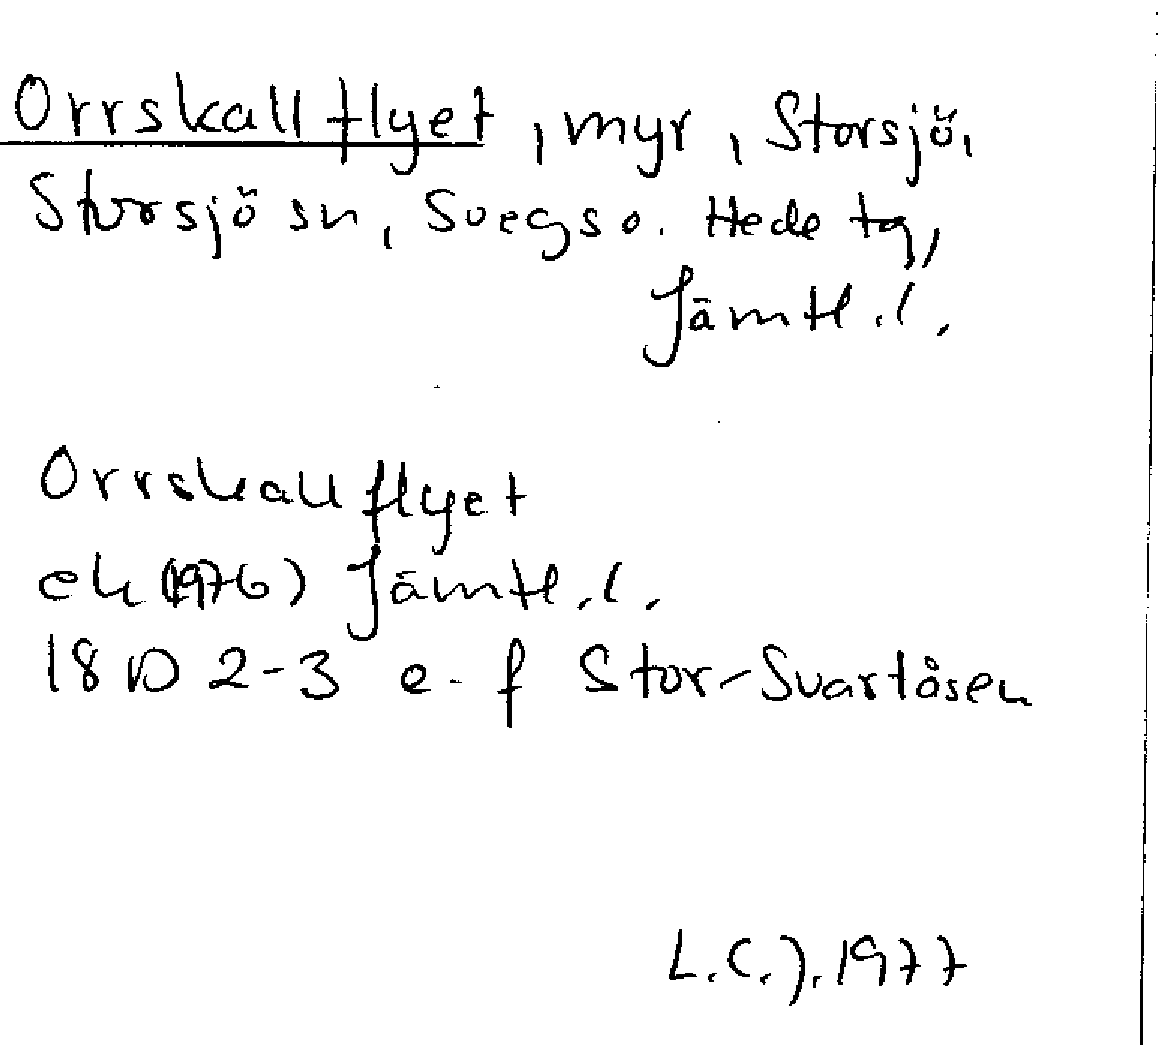 Orrskallflyet, myr, Storsjö,
Storsjö sn, Svegs o. Hede tg,
Jämtl. l.
Orrskallflyet
ek (1976) Jämtl. l.
18 D 2-3 e-f Stor-Svartåsen
L.C.J. 1977